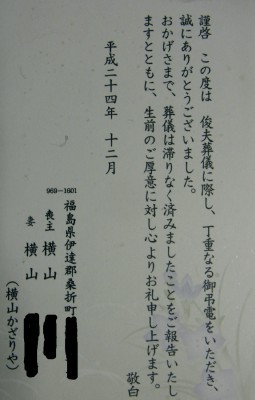 謹啓　この度は　俊夫葬儀に際し、丁重なる御弔電をいただき、
誠にありがとうございました。
おかげさまで、葬儀は滞りなく済みましたことをご報告いたし
ますとともに、生前のご厚意に対し心よりお礼申し上げます。
敬白
平成二十四年　十二月
969-1601
福島県伊達郡桑折町
喪主　横山
妻　横山
（横山かざりや）